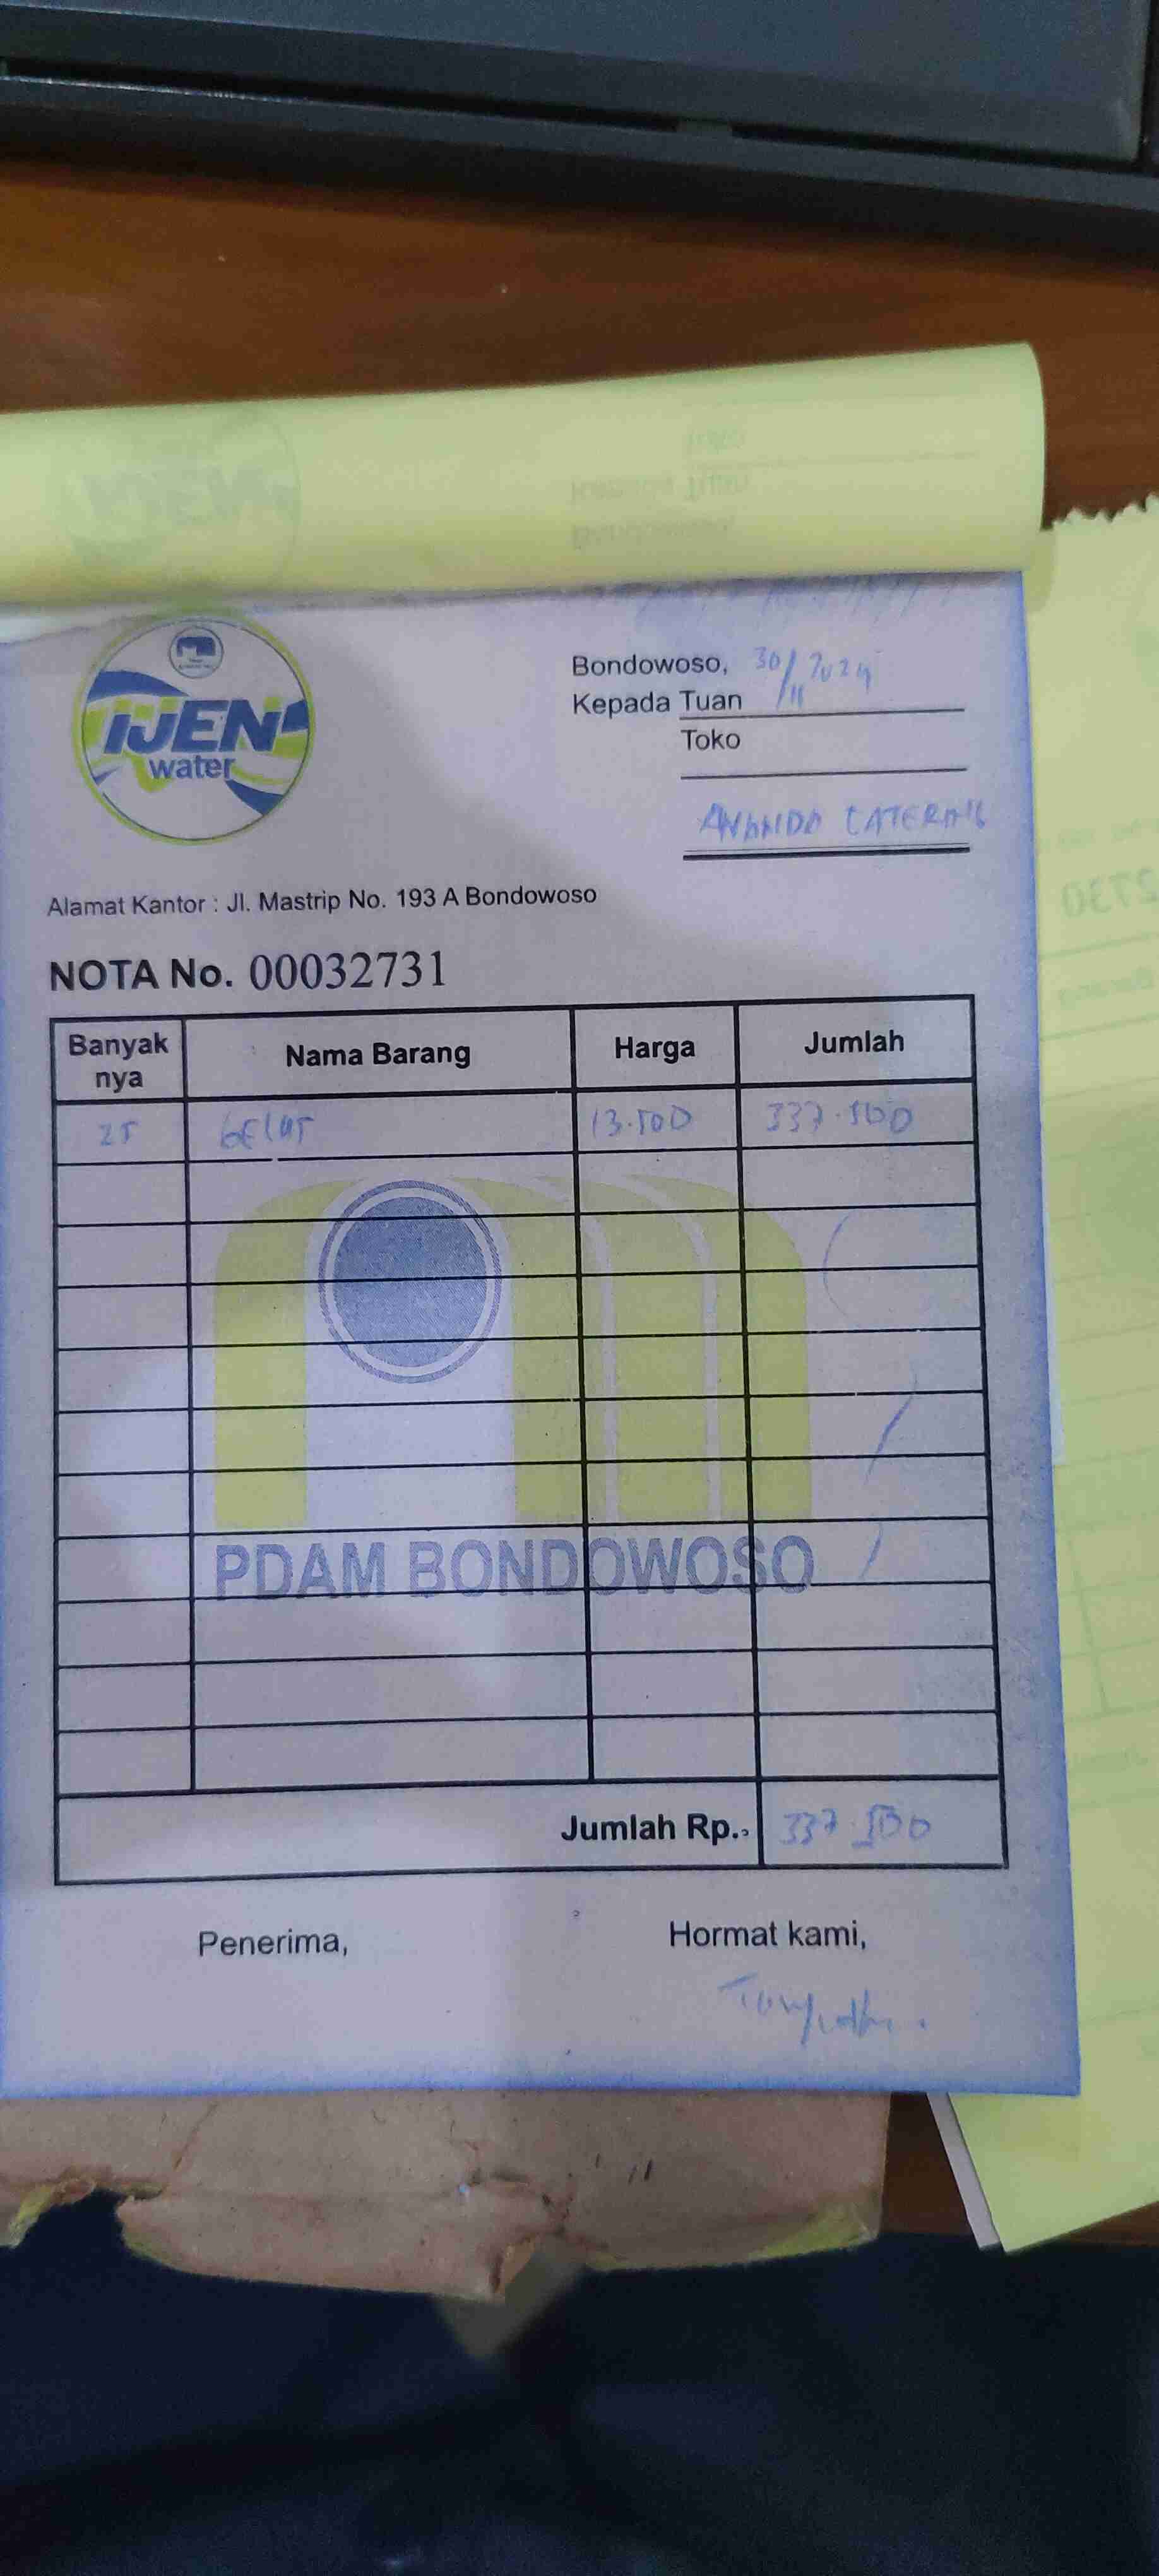 IJEN
water
Bondowoso, 30/11 2024
Kepada Tuan
Toko
ANANDA CATERING
Alamat Kantor : Jl. Mastrip No. 193 A Bondowoso
NOTA No. 00032731
Banyak nya Nama Barang Harga Jumlah
25 GELAS 13.500 337.500
PDAM BONDOWOSO
Jumlah Rp. 337.500
Penerima, Hormat kami,